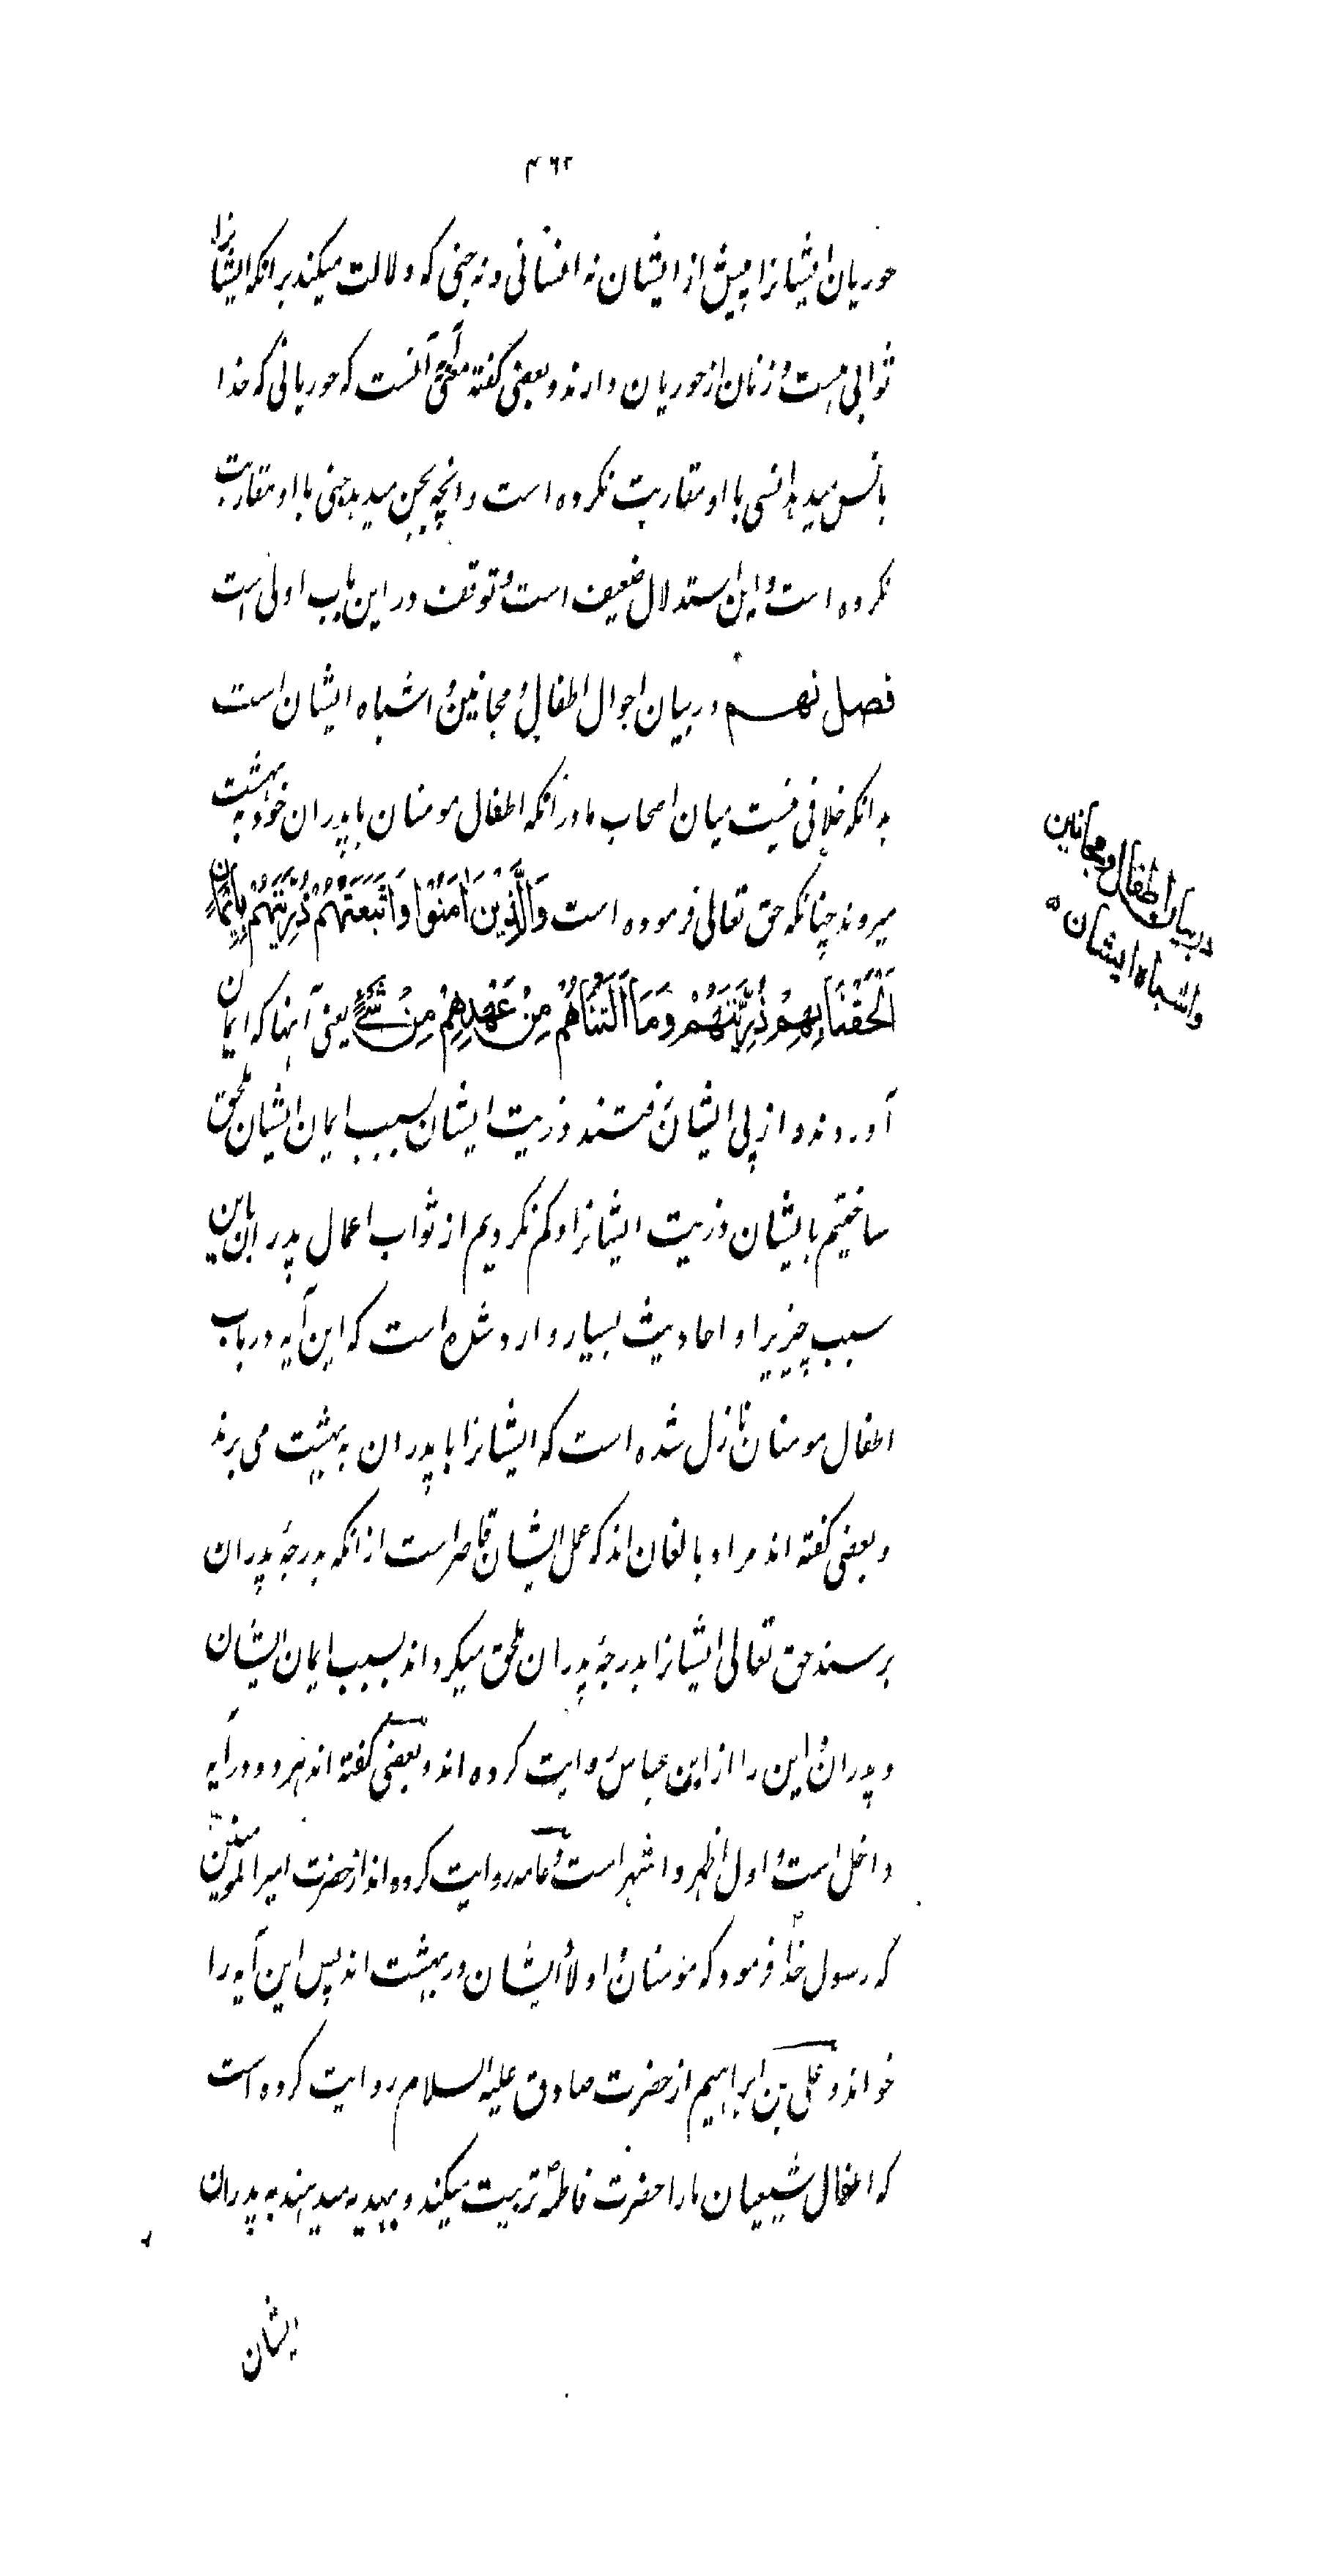 ۴۶۲
حوریان ایشانرا پیش از ایشان نه انسانی و نه جنی که دلالت میکند بر انکه ایشانرا
ثوابی هست و زنان از حوریان دارند و بعضی گفته معنیش آنست که حوریانی که خدا
بانس میدهد انسی با او مقاربت نکرده است و انچه بجن میدهد جنی با او مقاربت
نکرده است و این استدلال ضعیف است و توقف در این باب اولی است
فصل نهم در بیان احوال اطفال و مجانین و اشباه ایشان است
بدانکه خلافی نیست میان اصحاب ما در انکه اطفال مومنان با پدران خود به بهشت
میروند چنانکه حق تعالی فرموده است وَالَّذِینَ اٰمَنُوْا وَاتَّبَعَتْهُمْ ذُرِّیَّتُهُمْ بِاِیْمَانٍ
اَلْحَقْنَا بِهِمْ ذُرِّیَّتَهُمْ وَمَا اَلَتْنَاهُمْ مِنْ عَهْدِهِمْ مِنْ شَیْءٍ یعنی آنها که ایمان
آوردند و از پی ایشان رفتند ذریت ایشان بسبب ایمان ایشان ملحق
ساختیم بایشان ذریت ایشانرا و کم نکردیم از ثواب اعمال پدران باین
سبب چیزیرا و احادیث بسیار وارد شده است که این آیه در باب
اطفال مومنان نازل شده است که ایشانرا با پدران به بهشت می برند
و بعضی گفته اند مراد بالغان اند که عمل ایشان قاصر است از انکه بدرجۀ پدران
برسند حق تعالی ایشانرا بدرجۀ پدران ملحق میگرداند بسبب ایمان ایشان
و پدران و این را از ابن عباس روایت کرده اند و بعضی گفته اند هر دو در آیه
داخل است و اول اظهر و اشهر است و عامه روایت کرده اند از حضرت امیر المومنین
که رسول خدا فرمود که مؤمنان و اولاد ایشان در بهشت اند پس این آیه را
خواند و علی بن ابراهیم از حضرت صادق علیه السلام روایت کرده است
که اطفال شیعیان ما را حضرت فاطمه تربیت میکند و بهدیه میدهند به پدران
ایشان
در بیان اطفال و مجانین
و اشباه ایشان